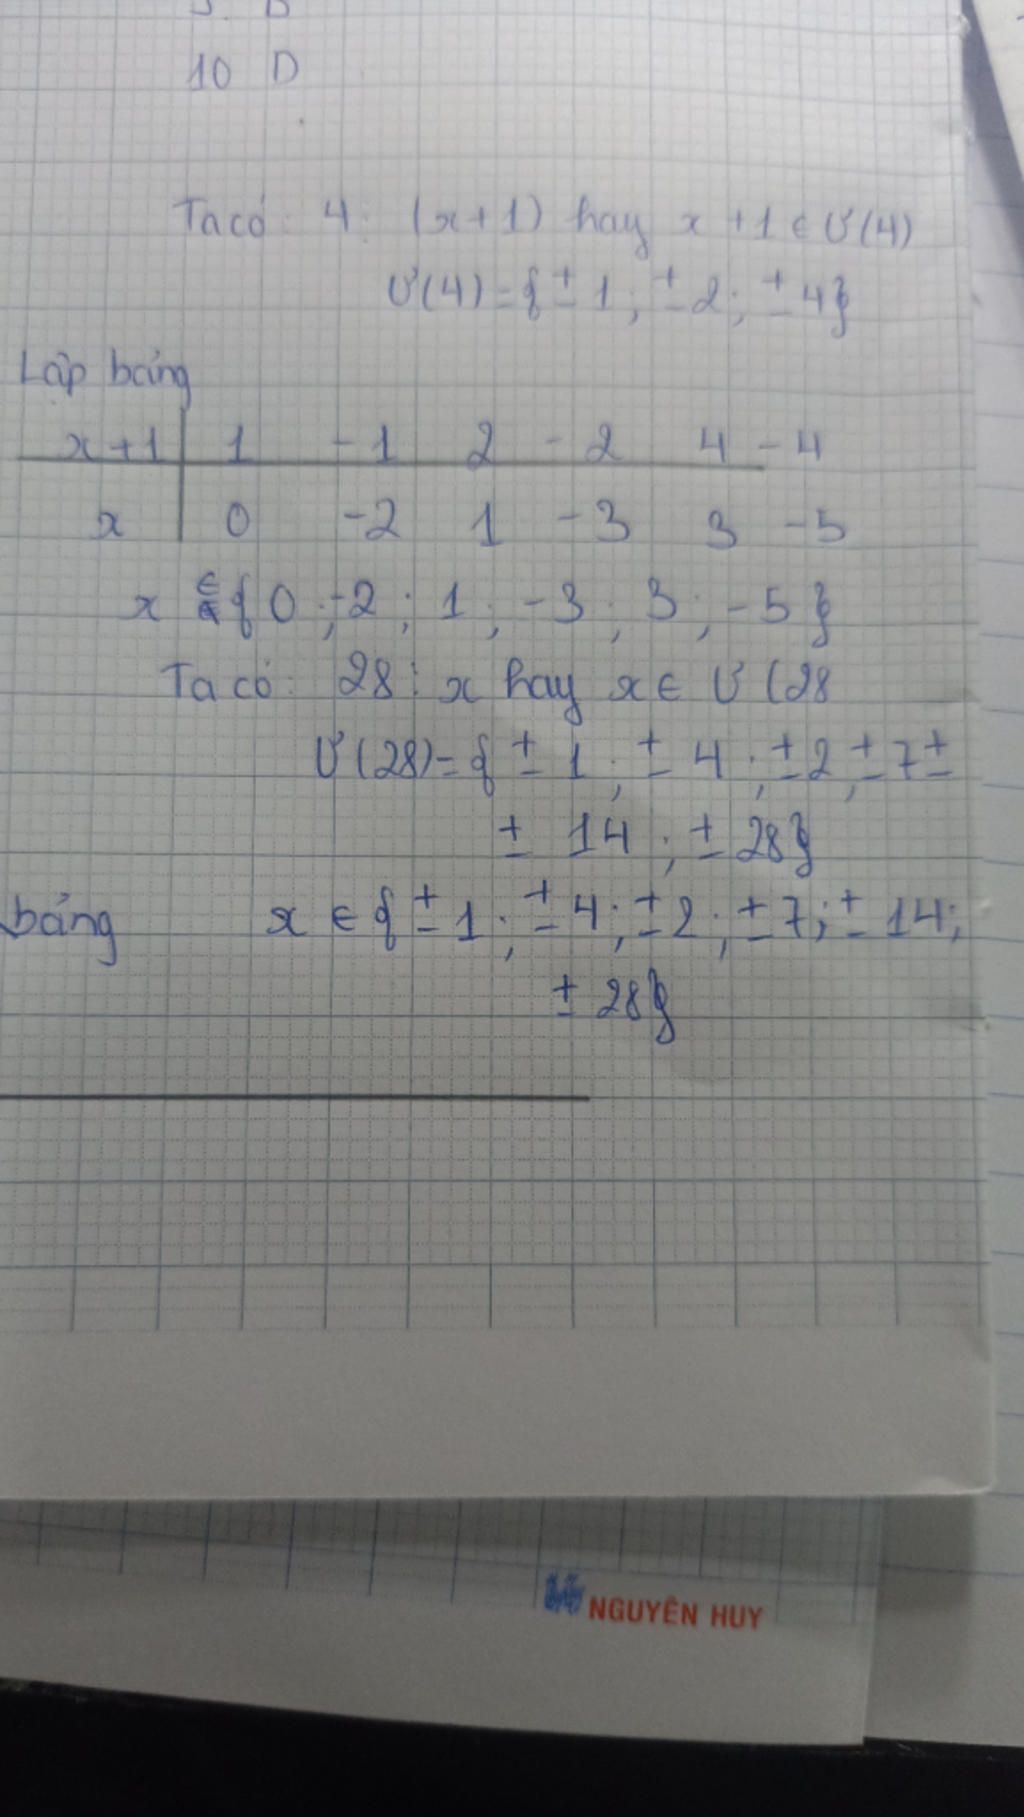 10 D
Ta có: 4 ⋮ (x+1) hay x +1 ∈ Ư(4)
Ư(4)={± 1; ±2; ±4}
Lập bảng
x+1 | 1 -1 2 -2 4 -4
x | 0 -2 1 -3 3 -5
x ∈ { 0 ; -2 ; 1 ; -3 ; 3 ; -5 }
Ta có: 28 ⋮ x hay x ∈ Ư (28
Ư (28)= { ± 1 ; ± 4 ; ±2 ; ±7 ±
± 14 ; ± 28}
bảng x ∈ { ± 1 ; ± 4 ; ± 2 ; ± 7 ; ± 14 ;
± 28}
NGUYÊN HUY